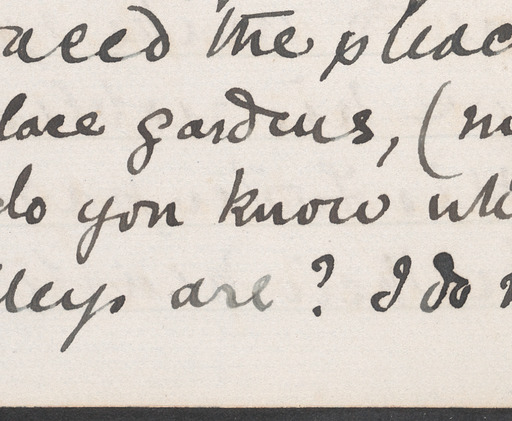 aced the pleac
lace gardens, (m
do you know wh
lleys are? I do n